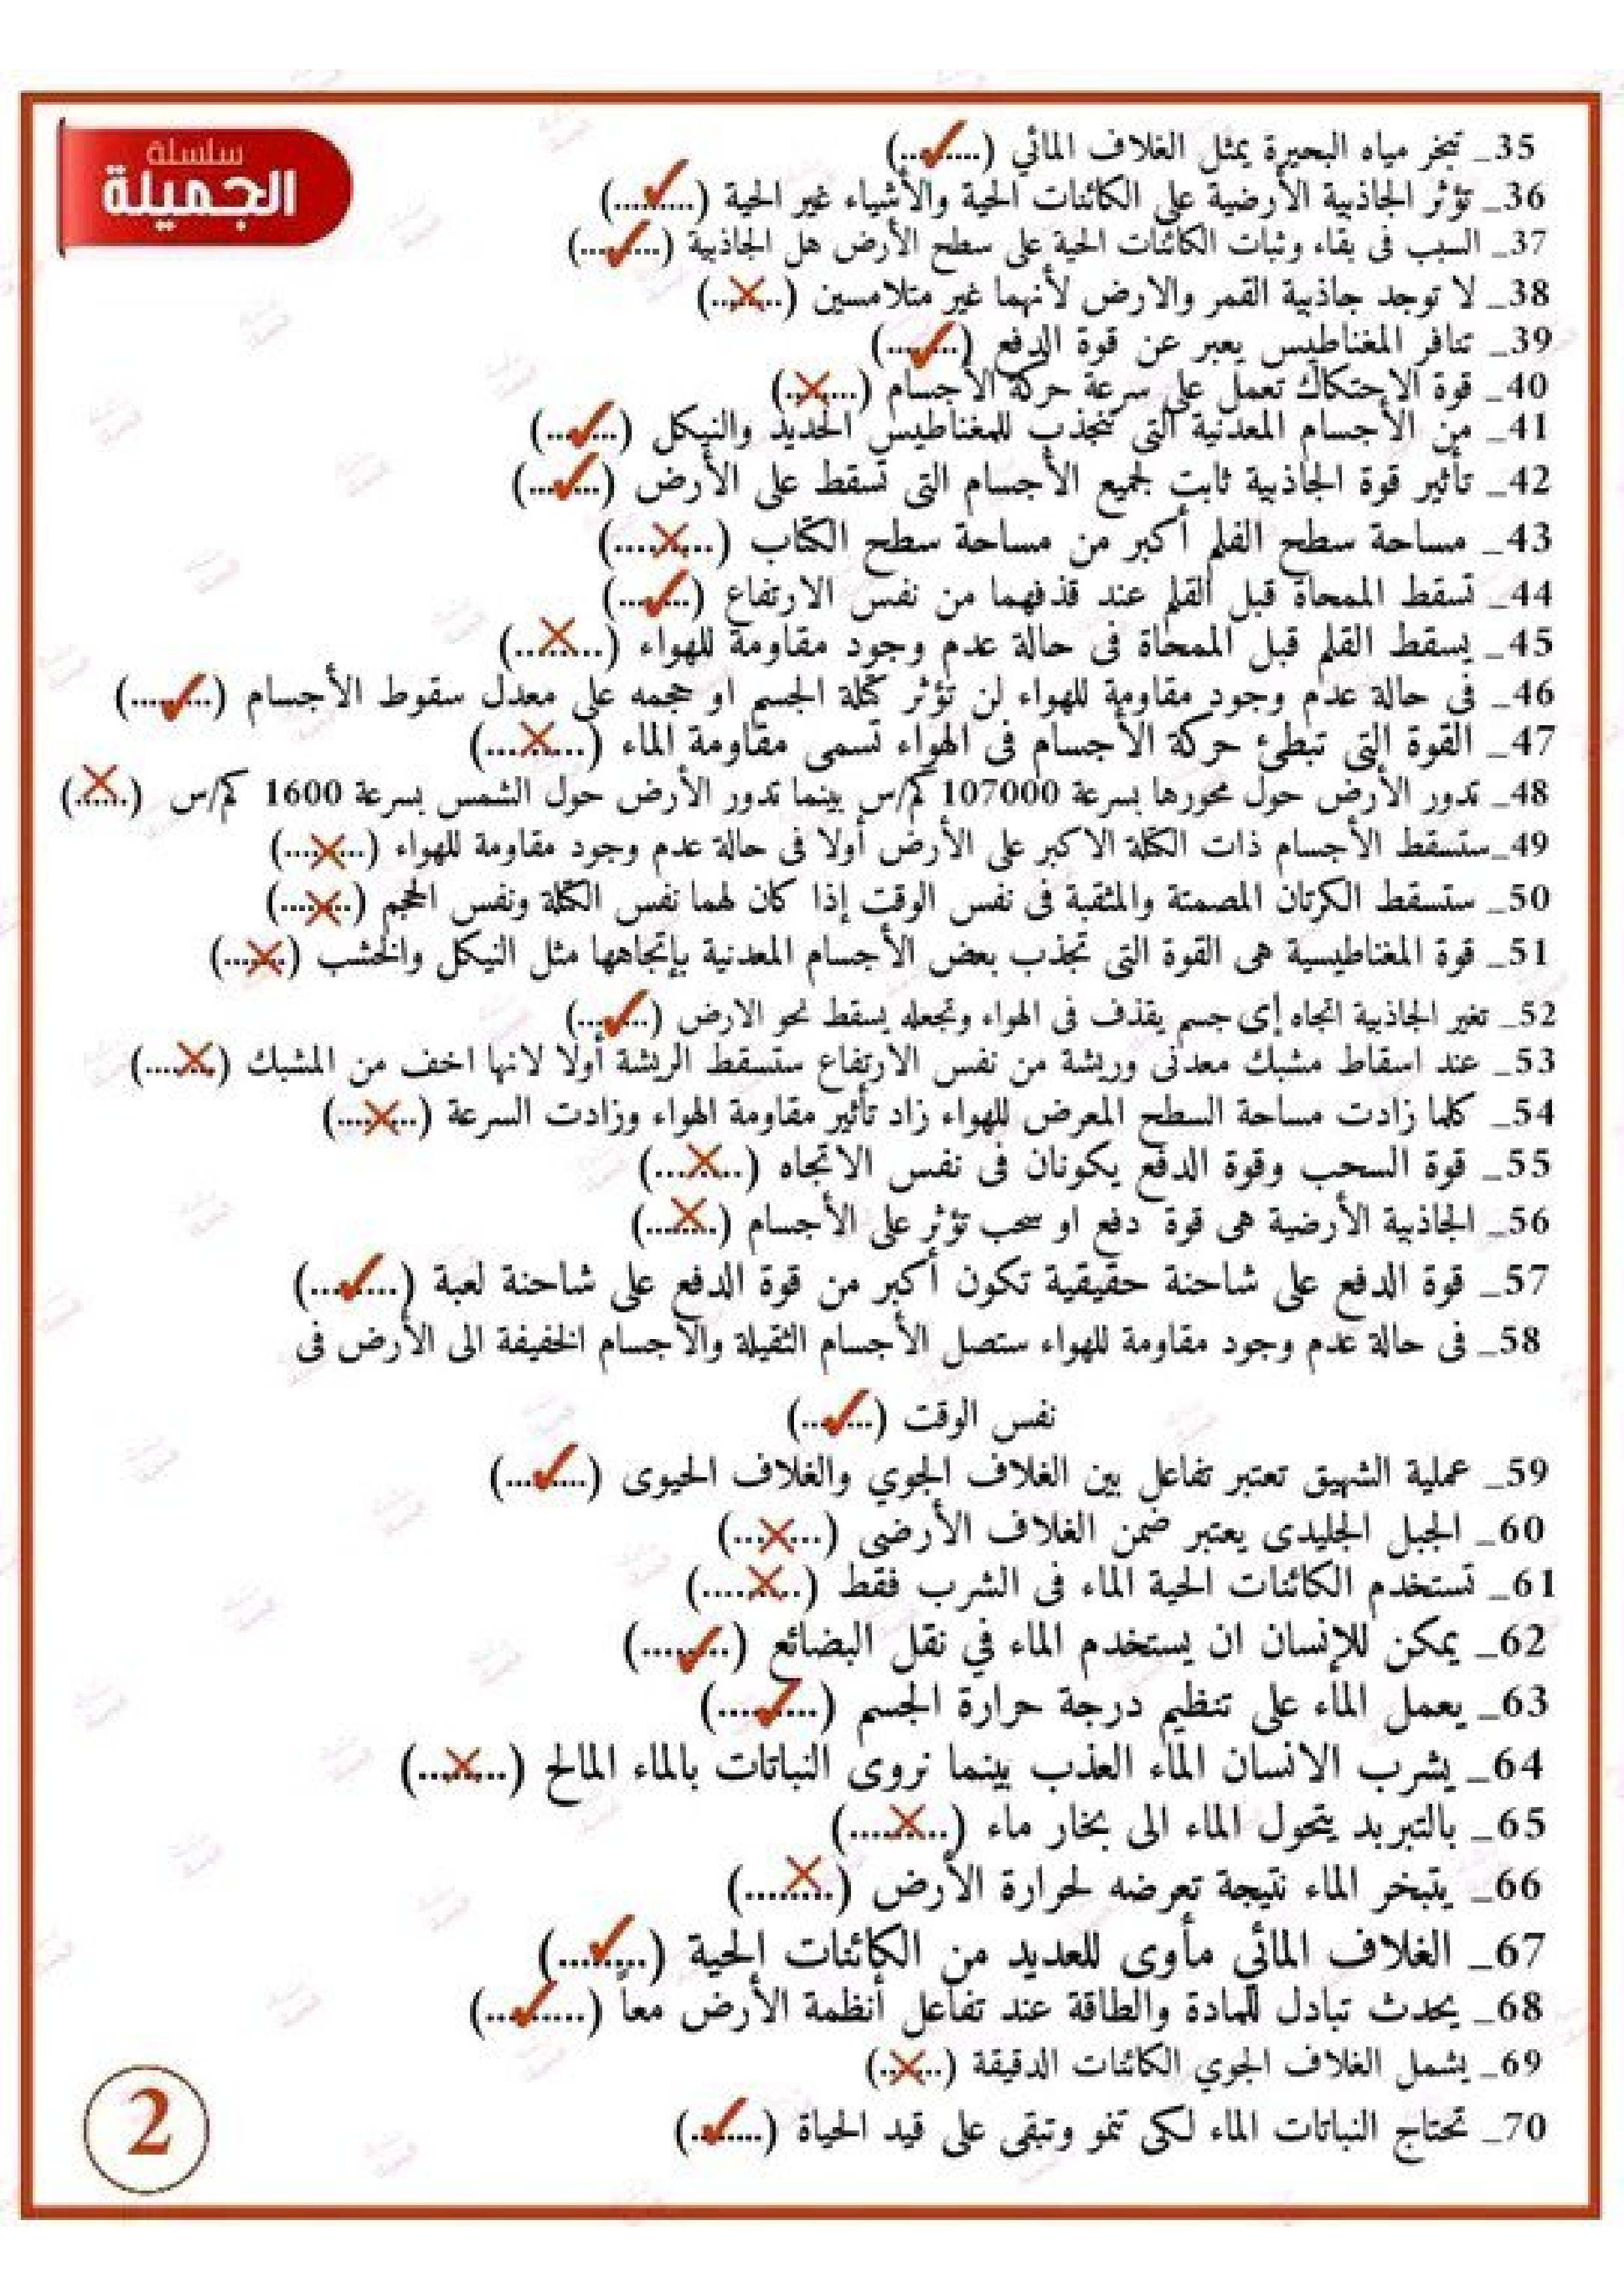 سلسلة
الجميلة
35_ تبخر مياه البحيرة يمثل الغلاف المائي (..✓.....)
36_ تؤثر الجاذبية الأرضية على الكائنات الحية والأشياء غير الحية (....✓....)
37_ السبب فى بقاء وثبات الكائنات الحية على سطح الأرض هل الجاذبية (...✓....)
38_ لا توجد جاذبية القمر والارض لأنهما غير متلامسين (..✗....)
39_ تنافر المغناطيس يعبر عن قوة الدفع (...✓...)
40_ قوة الاحتكاك تعمل على سرعة حركة الأجسام (..✗....)
41_ من الأجسام المعدنية التى تنجذب للمغناطيس الحديد والنيكل (...✓...)
42_ تأثير قوة الجاذبية ثابت لجميع الأجسام التى تسقط على الأرض (...✓...)
43_ مساحة سطح القلم أكبر من مساحة سطح الكتاب (....✗....)
44_ تسقط الممحاة قبل القلم عند قذفهما من نفس الارتفاع (...✓...)
45_ يسقط القلم قبل الممحاة فى حالة عدم وجود مقاومة للهواء (...✗....)
46_ فى حالة عدم وجود مقاومة للهواء لن تؤثر كتلة الجسم او حجمه على معدل سقوط الأجسام (...✓....)
47_ القوة التى تبطئ حركة الأجسام فى الهواء تسمى مقاومة الماء (...✗....)
48_ تدور الأرض حول محورها بسرعة 107000 كم/س بينما تدور الأرض حول الشمس بسرعة 1600 كم/س (..✗...)
49_ستسقط الأجسام ذات الكتلة الاكبر على الأرض أولا فى حالة عدم وجود مقاومة للهواء (...✗...)
50_ ستسقط الكرتان المصمتة والمثقبة فى نفس الوقت إذا كان لهما نفس الكتلة ونفس الحجم (...✗...)
51_ قوة المغناطيسية هى القوة التى تجذب بعض الأجسام المعدنية بإتجاهها مثل النيكل والخشب (...✗...)
52_ تغير الجاذبية اتجاه إى جسم يقذف فى الهواء وتجعله يسقط نحو الارض (...✓...)
53_ عند اسقاط مشبك معدنى وريشة من نفس الارتفاع ستسقط الريشة أولا لانها اخف من المشبك (....✗..)
54_ كلما زادت مساحة السطح المعرض للهواء زاد تأثير مقاومة الهواء وزادت السرعة (...✗...)
55_ قوة السحب وقوة الدفع يكونان فى نفس الاتجاه (...✗....)
56_ الجاذبية الأرضية هى قوة دفع او سحب تؤثر على الأجسام (...✗...)
57_ قوة الدفع على شاحنة حقيقية تكون أكبر من قوة الدفع على شاحنة لعبة (...✓....)
58_ فى حالة عدم وجود مقاومة للهواء ستصل الأجسام الثقيلة والأجسام الخفيفة الى الأرض فى
نفس الوقت (...✓...)
59_ عملية الشهيق تعتبر تفاعل بين الغلاف الجوي والغلاف الحيوى (...✓....)
60_ الجبل الجليدى يعتبر ضمن الغلاف الأرضى (...✗...)
61_ تستخدم الكائنات الحية الماء فى الشرب فقط (....✗...)
62_ يمكن للإنسان ان يستخدم الماء في نقل البضائع (....✓...)
63_ يعمل الماء على تنظيم درجة حرارة الجسم (....✓....)
64_ يشرب الانسان الماء العذب بينما نروى النباتات بالماء المالح (...✗....)
65_ بالتبريد يتحول الماء الى بخار ماء (....✗...)
66_ يتبخر الماء نتيجة تعرضه لحرارة الأرض (.....✗...)
67_ الغلاف المائي مأوى للعديد من الكائنات الحية (....✓....)
68_ يحدث تبادل للمادة والطاقة عند تفاعل أنظمة الأرض معاً (...✓.....)
69_ يشمل الغلاف الجوي الكائنات الدقيقة (..✗...)
70_ تحتاج النباتات الماء لكى تنمو وتبقى على قيد الحياة (...✓....)
2